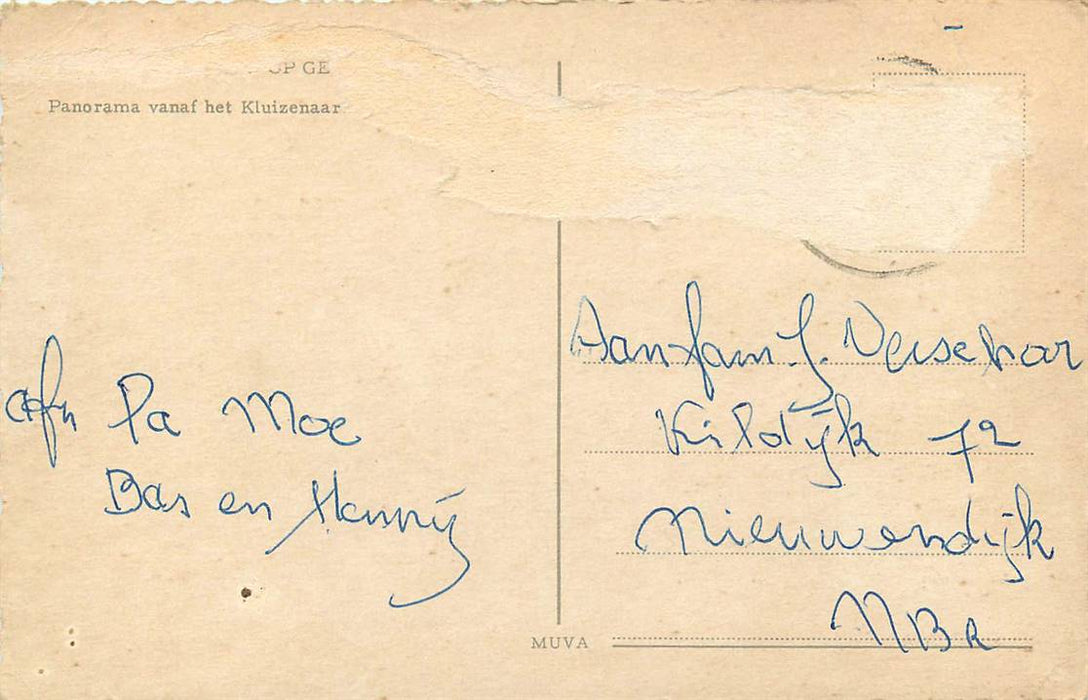 OP GE
Panorama vanaf het Kluizenaar
afn Pa Moe
Bas en Henny
Aan fam J. Verschoor
Kildijk 72
Nieuwendijk
NBR
MUVA